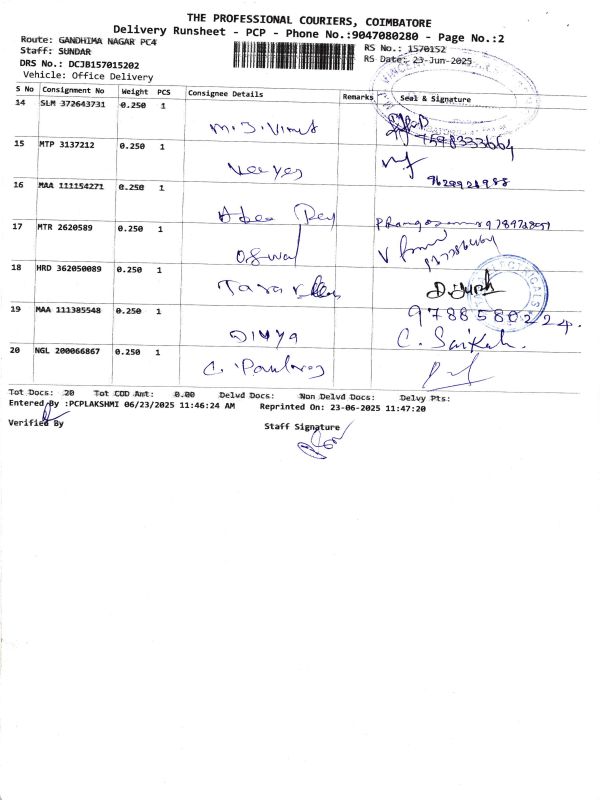 THE PROFESSIONAL COURIERS, COIMBATORE
Delivery Runsheet - PCP - Phone No.:9047080280 - Page No.:2
Route: GANDHIMA NAGAR PC4
RS No.: 1570152
Staff: SUNDAR
RS Date: 23-Jun-2025
DRS No.: DCJB157015202
Vehicle: Office Delivery
S No Consignment No Weight PCS Consignee Details Remarks Seal & Signature
14 SLM 372643731 0.250 1
7598333664
15 MTP 3137212 0.250 1
9629928988
16 MAA 111154271 0.250 1
17 MTR 2620589 0.250 1
18 HRD 362050089 0.250 1
ELECTRICALS
9788580224.
19 MAA 111385548 0.250 1
DIVYA C.
20 NGL 200066867 0.250 1
C.
Tot Docs: 20 Tot COD Amt: 0.00 Delvd Docs: Non Delvd Docs: Delvy Pts:
Entered By :PCPLAKSHMI 06/23/2025 11:46:24 AM Reprinted On: 23-06-2025 11:47:20
Verified By Staff Signature